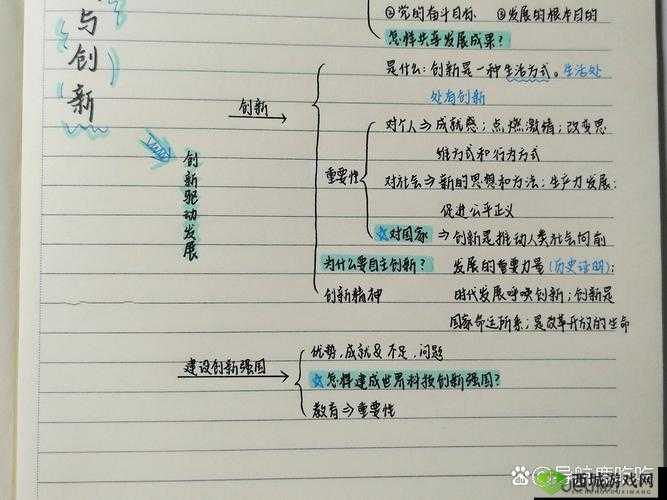 与创新
②党的奋斗目标 ③发展的根本目的
怎样共享发展成果?
创新
是什么:创新是一种生活方式。生活处
处有创新
重要性
对个人⇒成就感;点燃激情;改变思
维方式和行为方式
对社会⇒新的思想和方法;生产力发展;
促进公平正义
☆对国家⇒创新是推动人类社会向前
发展的重要力量(历史证明);
时代发展呼唤创新;创新是
国家命运所系;是改革开放的生命
为什么要自主创新?
创新精神
创新驱动发展
建设创新强国
优势,成就&不足,问题
☆怎样建成世界科技创新强国?
教育⇒重要性
西城游戏网